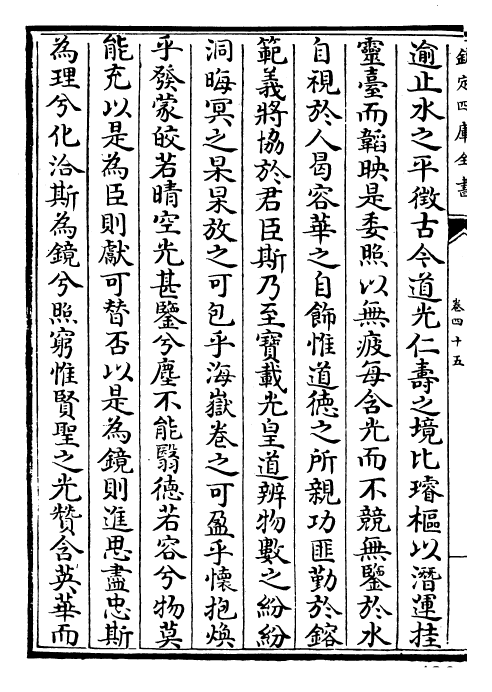 欽定四庫全書
卷四十五
逾止水之平徵古今道光仁壽之境比璿樞以潛運挂
靈臺而韜映是委照以無疲每含光而不競無鑒於水
自視於人曷容華之自飾惟道德之所親功匪勤於鎔
範義將協於君臣斯乃至寶載光皇道辨物數之紛紛
洞晦冥之杲杲放之可包乎海嶽卷之可盈乎懷抱煥
乎發蒙皎若晴空光甚鑒兮塵不能翳德若容兮物莫
能充以是為臣則獻可替否以是為鏡則進思盡忠斯
為理兮化洽斯為鏡兮照窮惟賢聖之光贊含英華而